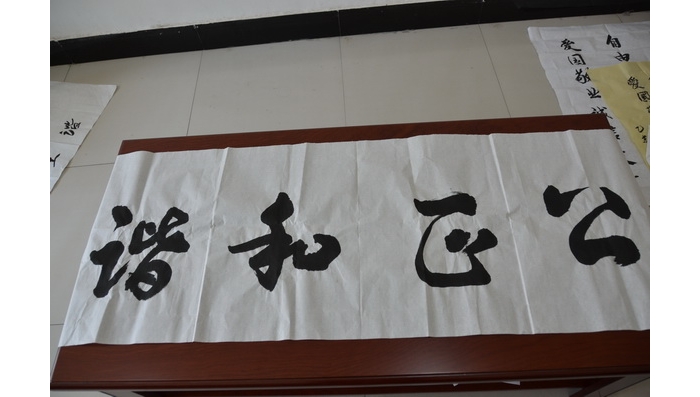 公正和谐
自由
爱国敬业诚信
爱国
谐